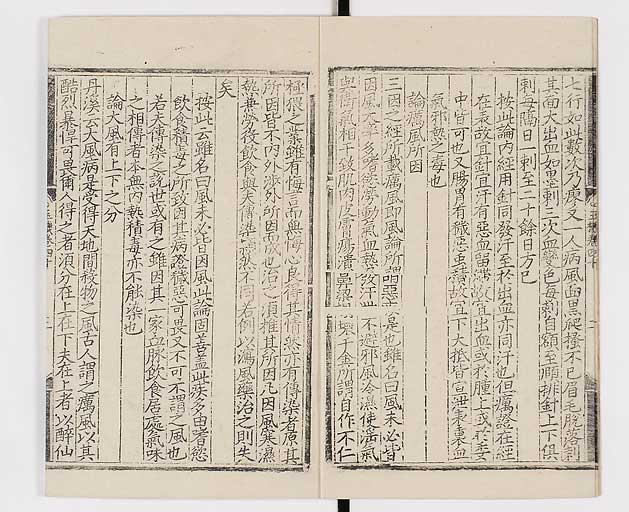 七行如此數次乃瘳又一人病風面黑爬搔不已眉毛脫落刺
其面大出血如墨刺三次血變色每刺自額至頤排針上下俱
刺每隔日一刺至二十餘日方已
按此論內經用針同發汗至於出血亦同汗也但癘證在經
在表故宜針宜汗有惡血留滯故宜出血或於腫上或於委
中皆可也又腸胃有穢惡蟲積故宜下大抵皆宣泄表裏血
氣邪熱之毒也
論癘風所因
三因之經所載癘風即風論所謂惡是也雖名曰風未必皆
因風大率多嗜慾勞動氣血熱發汗不避邪風冷濕使榮氣
與衛氣相干致肌肉皮膚瘍潰鼻梁壞千金所謂自作不仁
極猥之業雖有悔言而無悔心良得其情然亦有傳染者原其
所因皆不內外涉外所因而成也治之須推其所因凡因風寒濕
熱兼勞役飲食與夫傳染固然不同右例以瀉風藥治之則失
矣
按此云雖名曰風未必皆因風此論固善蓋此疾多由嗜慾
飲食積毒之所致因其病證穢惡可畏又不可不謂之風也
若夫傳染之說世或有之雖因其一家血脉飲食居處氣味
之相傳者本無內熱積毒亦不能染也
論大風有上下之分
丹溪云大風病是受得天地間殺物之風古人謂之癘風以其
酷烈暴悍可畏爾人得之者須分在上在下夫在上者以醉仙